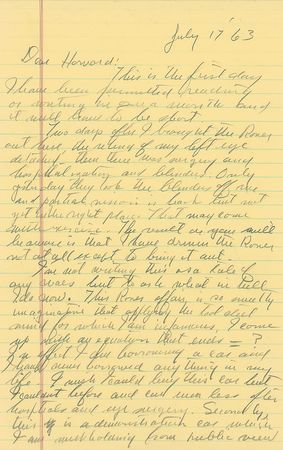 July 17 '63
Dear Howard:
This is the first day
I have been permitted reading
or writing in over a month and
it will have to be short.
Two days after I brought the Rover
out here the retina of my left eye
detached, then there was surgery and
hospitalization and blinders. Only
yesterday they took the blinders off me
and partial vision is back but not
yet in the right place. That may come
with exercise. The result as you will
be aware is that I have driven the Rover
not at all except to bring it out.
I'm not writing this as a tale of
any woes but to ask what in hell
I do now. This Rover affair is so
imaginative that applying the
mind for which I am infamous, I come
up with an equation that ends = ?
In effect I am borrowing a car and
I have never borrowed anything in my
life. I might could buy this car but
I couldn't before and can even less after
hospitals and eye surgery. Secondly
this is a demonstration car which
I am withholding from public view